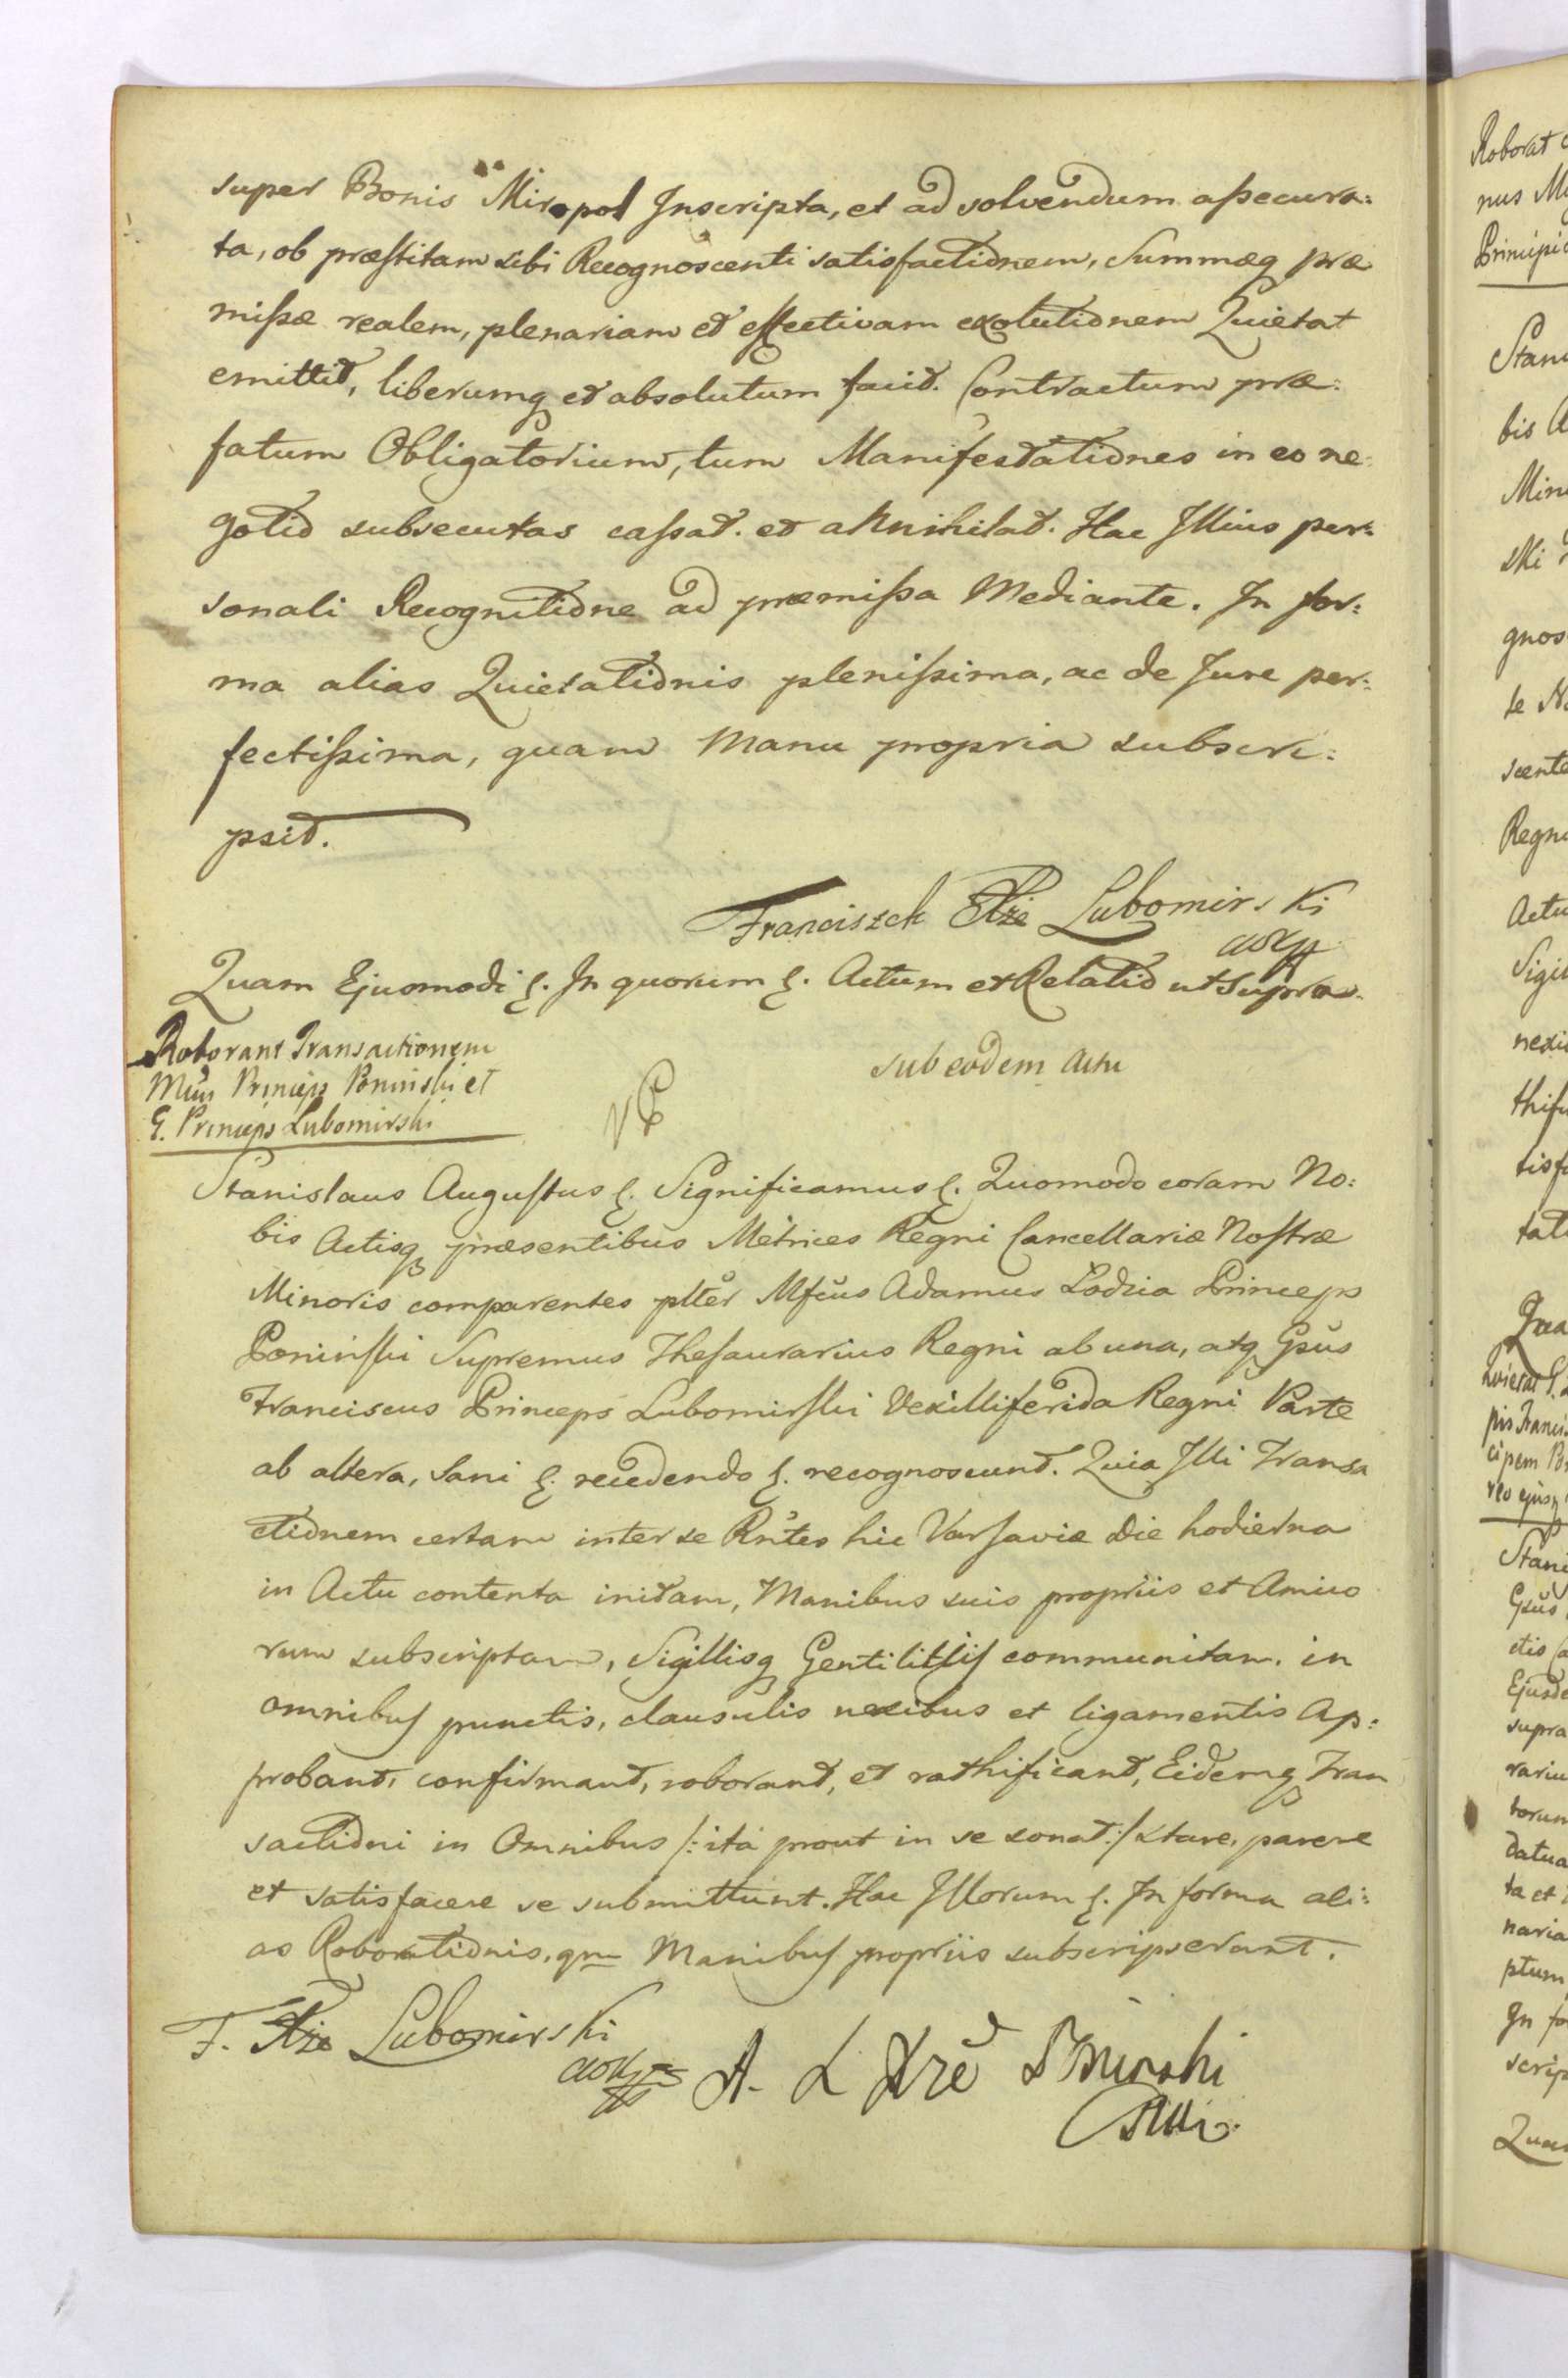 super Bonis Miropol Inscripta, et ad solvendum assecura:
ta, ob præstitam sibi Recognoscenti satisfactionem, Summæq præ
missæ realem, plenariam et effectivam exolutionem Quietat
emittit, liberumq et absolutum facit. Contractum præ:
fatum Obligatorium, tum Manifestationes in eo ne:
gotio subsecutas cassat. et annihilat. Hac Illius per:
sonali Recognitione ad præmissa Mediante. In for:
ma alias Quietationis plenissima, ac de Jure per:
fectissima, quam Manu propria subscri:
psit.
Franciszek Xże Lubomirski
Quam Ejusmodi &. In quorum &. Actum et Relatio ut supra.
Roborant Transactionem
Mcus Princeps Poninski et
G. Princeps Lubomirski
sub eodem Actu
Stanislaus Augustus &. Significamus &. Quomodo coram No:
bis Actisq præsentibus Metrices Regni Cancellariæ Nostræ
Minoris comparentes plter Mfcus Adamus Lodzia Princeps
Poninski Supremus Thesaurarius Regni ab una, atq Gsus
Franciscus Princeps Lubomirski Vexilliferida Regni Parte
ab altera, Sani &. recedendo &. recognoscunt. Quia Illi Transa
ctionem certam inter se Rntes hic Varsaviæ Die hodierna
in Actu contenta initam, Manibus suis propriis et Amico
rum subscriptam, Sigillisq Gentilitiis communitam. in
omnibus punctis, clausulis nexibus et ligamentis Ap:
probant, confirmant, roborant, et rathificant, Eidemq Tran
sactioni in Omnibus /: ita prout in se sonat :/ stare, parere
et satisfacere se submittunt. Hac Illorum &. In forma ali:
as Roborationis, qm Manibus propriis subscripserant.
F. Xże Lubomirski
A. L Xże
Roborat
nus
Stan
bis
gnos
Regn
Actu
nexi
Stani
Gsus
supra
ptum